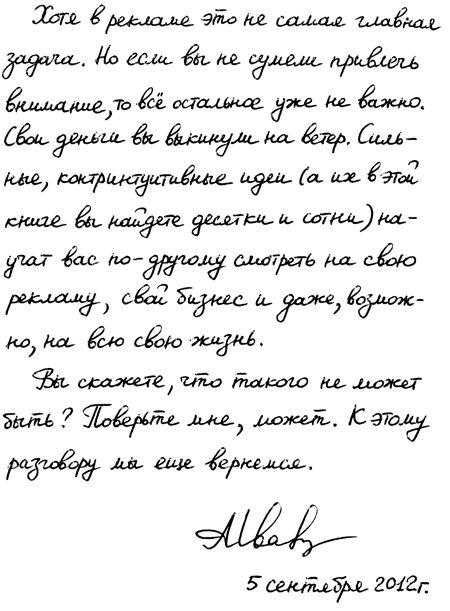 Хотя в рекламе это не самая главная
задача. Но если вы не сумели привлечь
внимание, то всё остальное уже не важно.
Свои деньги вы выкинули на ветер. Силь-
ные, контринтуитивные идеи (а их в этой
книге вы найдете десятки и сотни) на-
учат вас по-другому смотреть на свою
рекламу, свой бизнес и даже, возмож-
но, на всю свою жизнь.
Вы скажете, что такого не может
быть? Поверьте мне, может. К этому
разговору мы еще вернемся.
5 сентября 2012г.